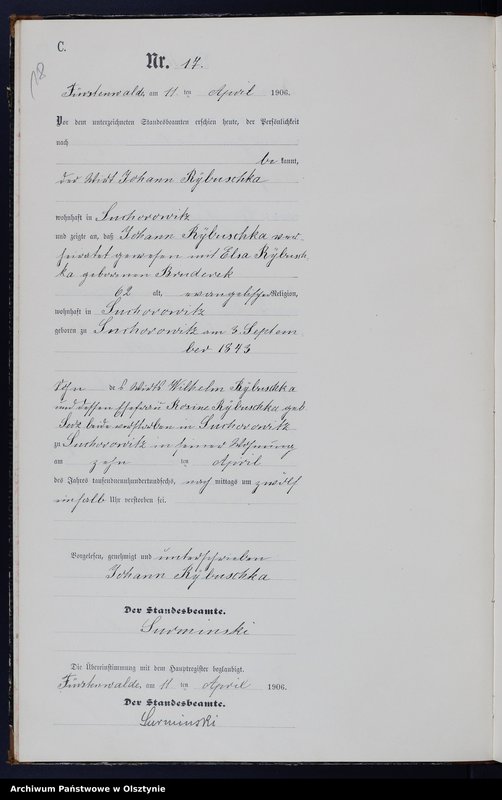 C.
Nr. 17.
Fürstenwalde, am 11 ten April 1906.
Vor dem unterzeichneten Standesbeamten erschien heute, der Persönlichkeit
nach
be kannt,
der Wirt Johann Rÿbuschka
wohnhaft in Suchorowitz
und zeigte an, daß Johann Rÿbuschka ver-
heiratet gewesen mit Elsa Rÿbusch-
ka geborenen Bruderek
62 alt, evangelischer Religion,
wohnhaft in Suchorowitz
geboren zu Suchorowitz am 3. Septem
ber 1843
Sohn des Wirts Wilhelm Rÿbuschka
und dessen Ehefrau Rosine Rÿbuschka geb.
beide verstorben in Suchorowitz
zu Suchorowitz in seiner Wohnung
am zehn ten April
des Jahres tausendneunhundertundsechs, nach mittags um zwölf
einhalb Uhr verstorben sei.
Vorgelesen, genehmigt und unterschrieben
Johann Rÿbuschka
Der Standesbeamte.
Surminski
Die Übereinstimmung mit dem Hauptregister beglaubigt.
Fürstenwalde, am 11 ten April 1906.
Der Standesbeamte.
Surminski
Archiwum Państwowe w Olsztynie